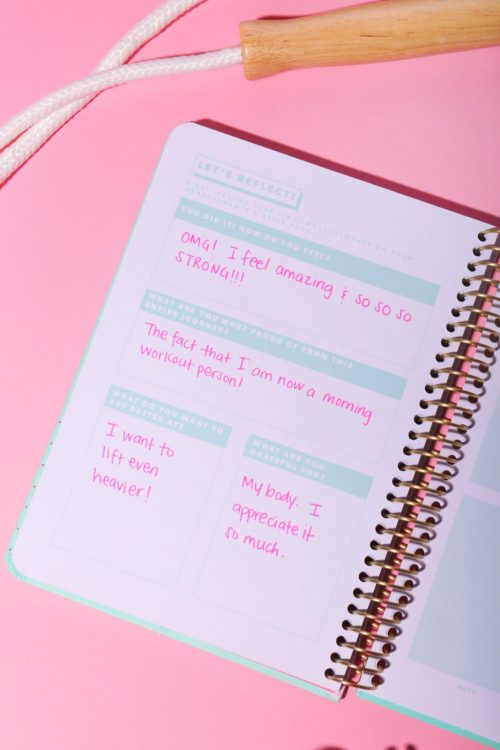 LET'S REFLECT!
FIRST, RECORD YOUR FINAL MEASUREMENTS ON YOUR
MEASUREMENTS & STATS PAGE
YOU DID IT! HOW DO YOU FEEL?
OMG! I feel amazing & so so so
STRONG!!!
WHAT ARE YOU MOST PROUD OF FROM THIS
ENTIRE JOURNEY?
The fact that I am now a morning
workout person!
WHAT DO YOU WANT TO
GET BETTER AT?
I want to
lift even
heavier!
WHAT ARE YOU
GRATEFUL FOR?
My body. I
appreciate it
so much.
BACK